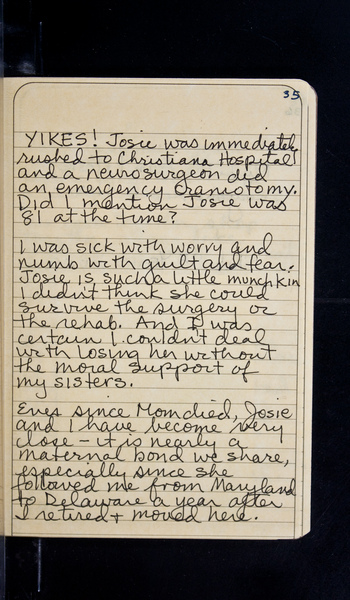 35
YIKES! Josie was immediately
rushed to Christiana Hospital
and a neurosurgeon did
an emergency craniotomy.
Did I mention Josie was
81 at the time?
I was sick with worry and
numb with guilt and fear.
Josie is such a little munchkin
I didn't think she could
survive the surgery or
the rehab. And I was
certain I couldn't deal
with losing her without
the moral support of
my sisters.
Ever since Mom died, Josie
and I have become very
close - it is nearly a
maternal bond we share,
especially since she
followed me from Maryland
to Delaware a year after
I retired + moved here.